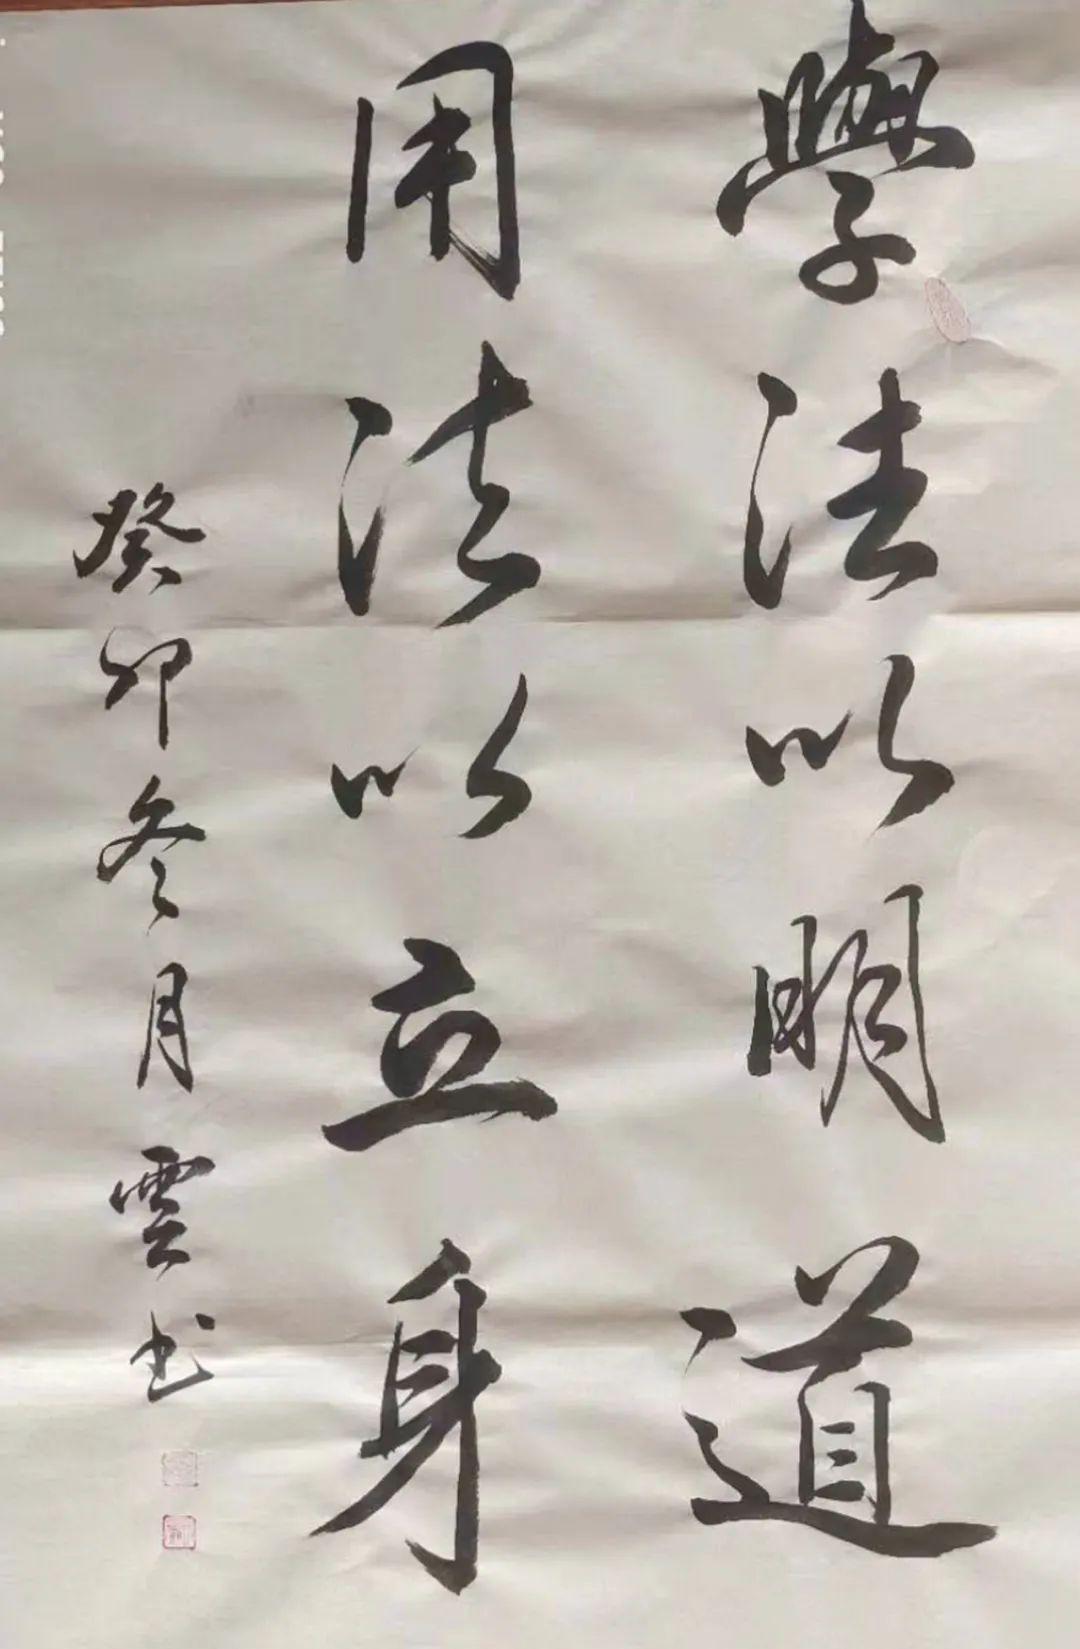 學法以明道
用法以立身
癸卯冬月雲书